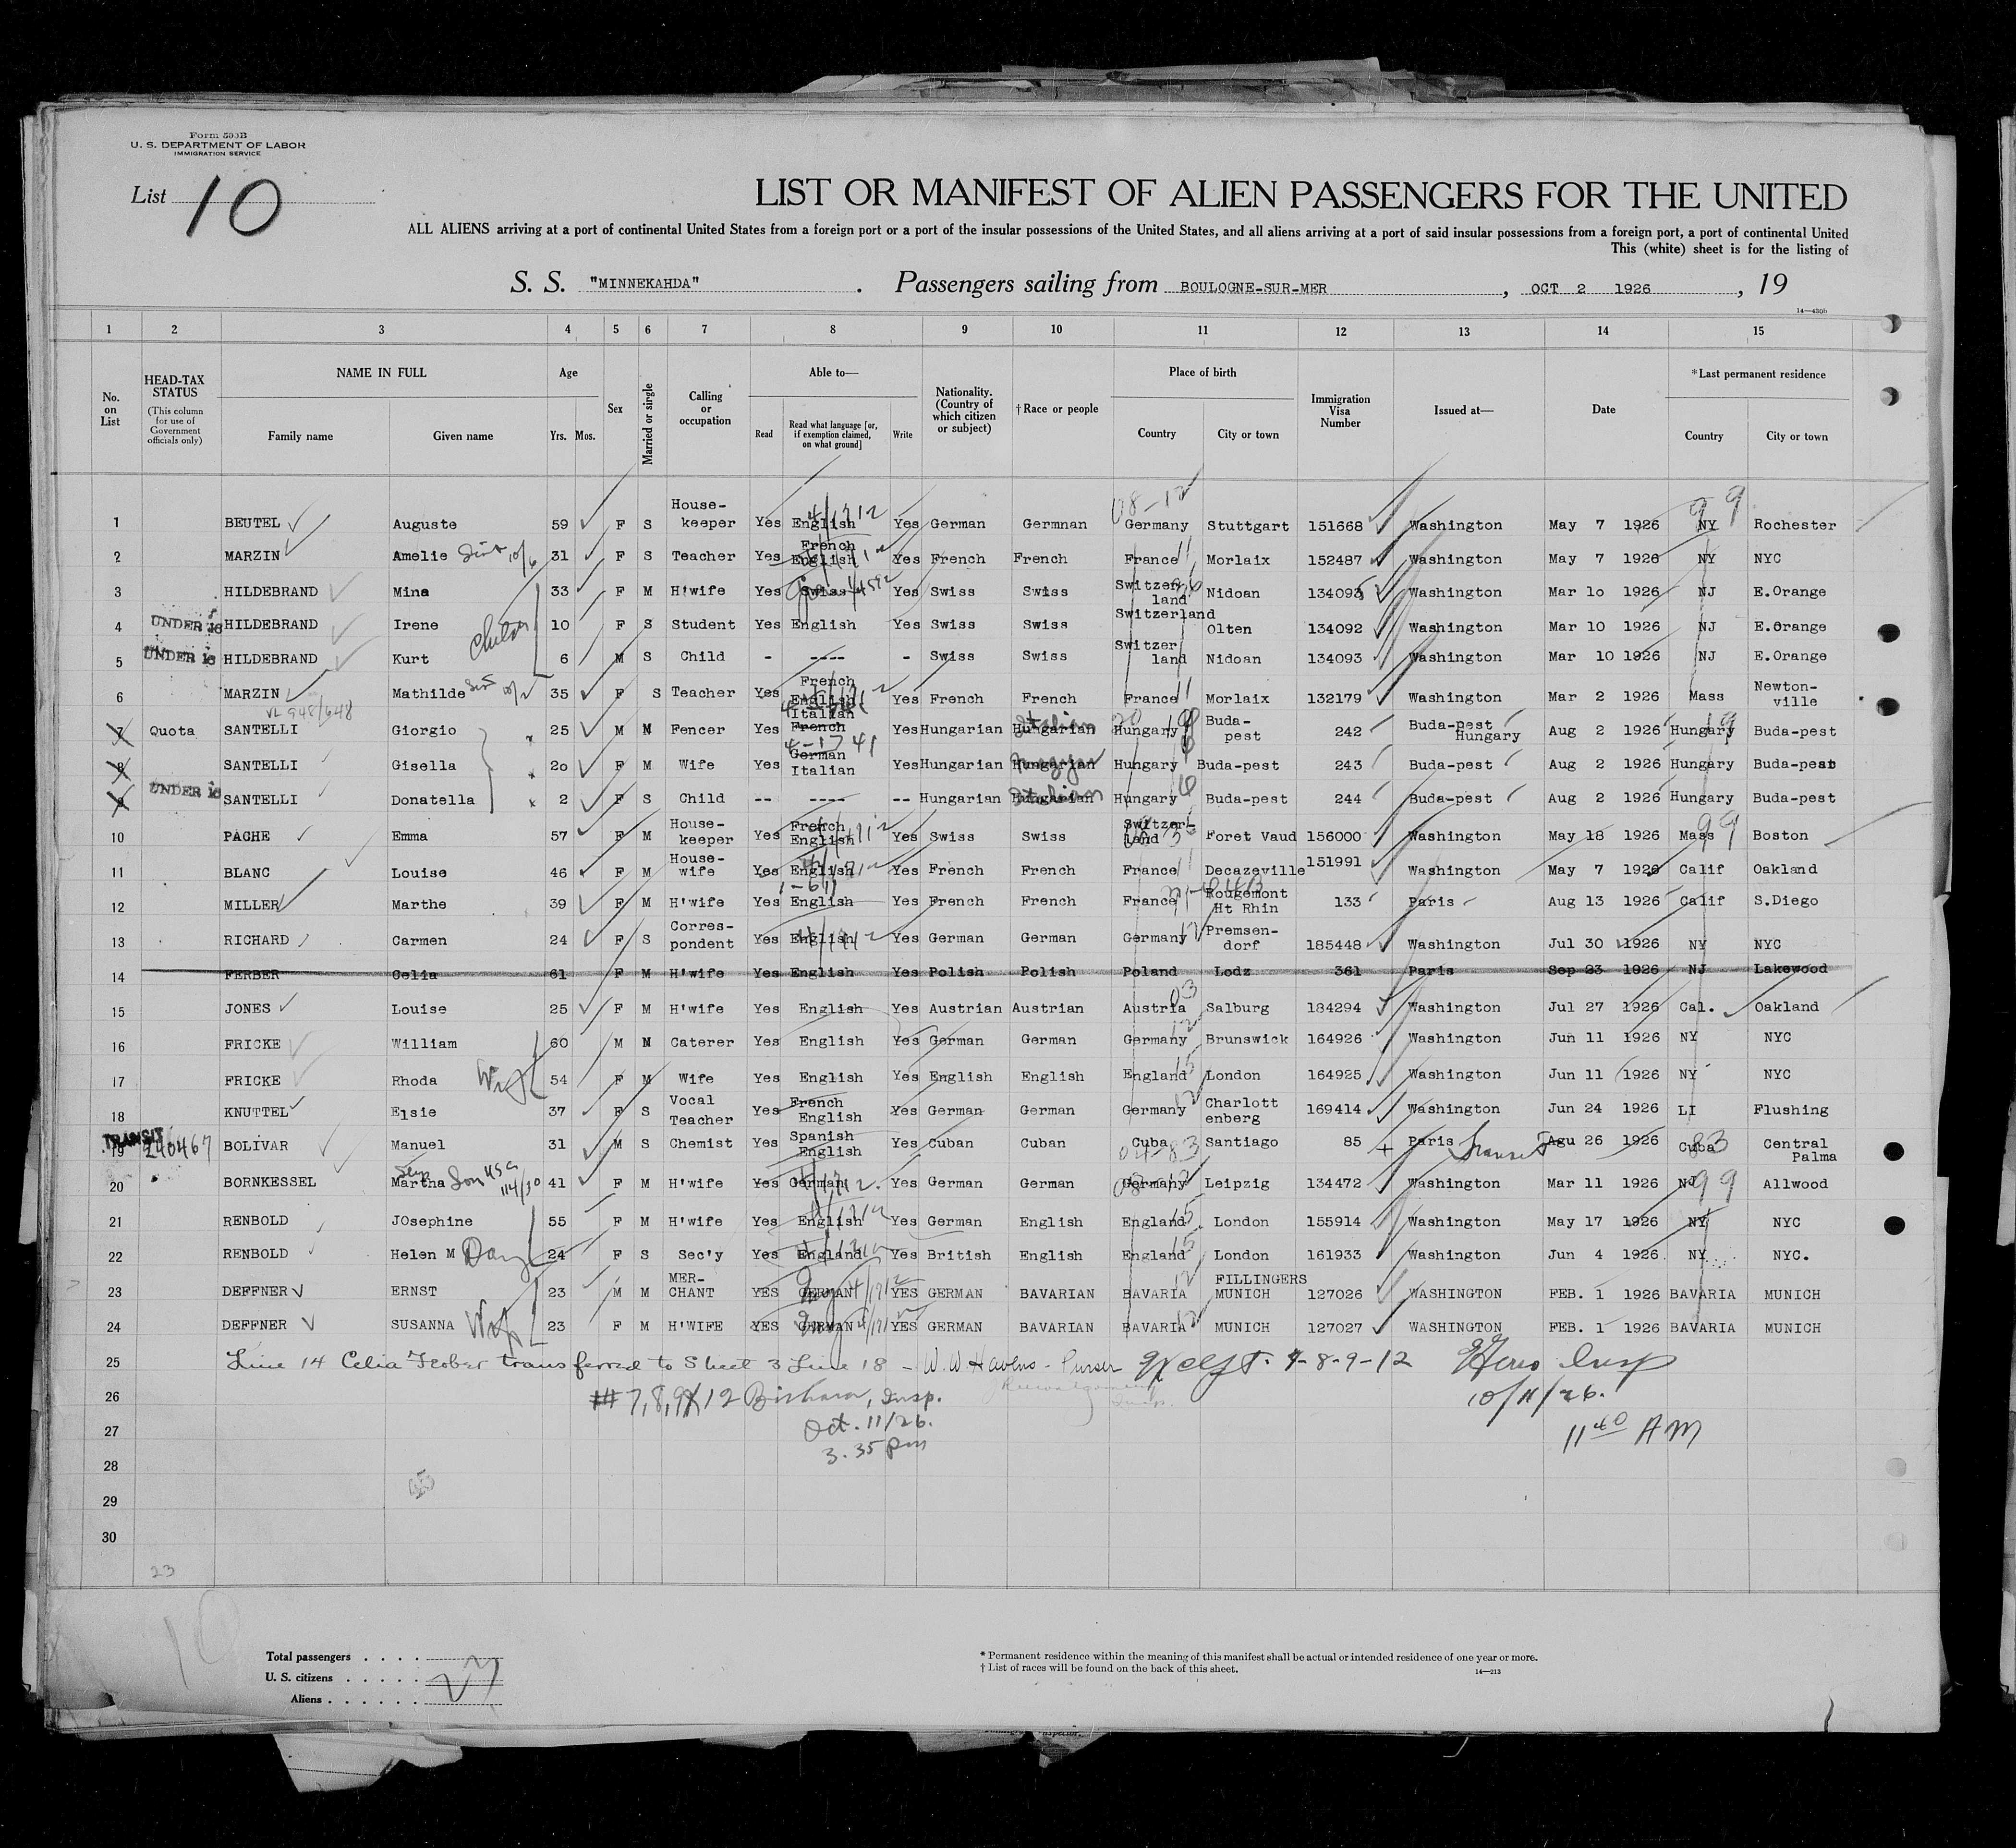 Form 500B
U. S. DEPARTMENT OF LABOR
IMMIGRATION SERVICE
List 10
LIST OR MANIFEST OF ALIEN PASSENGERS FOR THE UNITED
ALL ALIENS arriving at a port of continental United States from a foreign port or a port of the insular possessions of the United States, and all aliens arriving at a port of said insular possessions from a foreign port, a port of continental United
This (white) sheet is for the listing of
S. S. "MINNEKAHDA" . Passengers sailing from BOULOGNE-SUR-MER , OCT 2 1926 , 19
14—430b
1 2 3 4 5 6 7 8 9 10 11 12 13 14 15
No. on List
HEAD-TAX STATUS (This column for use of Government officials only)
NAME IN FULL Family name Given name
Age Yrs. Mos.
Sex
Married or single
Calling or occupation
Able to— Read Read what language [or, if exemption claimed, on what ground] Write
Nationality. (Country of which citizen or subject)
†Race or people
Place of birth Country City or town
Immigration Visa Number
Issued at—
Date
*Last permanent residence Country City or town
1 BEUTEL Auguste 59 F S House-keeper Yes English Yes German Germnan Germany Stuttgart 151668 Washington May 7 1926 NY Rochester
2 MARZIN Amelie 10/6 31 F S Teacher Yes French English Yes French French France Morlaix 152487 Washington May 7 1926 NY NYC
3 HILDEBRAND Mina 33 F M H'wife Yes Swiss Yes Swiss Swiss Switzerland Nidoan 134093 Washington Mar 1o 1926 NJ E.Orange
4 UNDER 16 HILDEBRAND Irene 10 F S Student Yes English Yes Swiss Swiss Switzerland Olten 134092 Washington Mar 10 1926 NJ E.Orange
5 UNDER 16 HILDEBRAND Kurt 6 M S Child - ---- - Swiss Swiss Switzerland Nidoan 134093 Washington Mar 10 1926 NJ E.Orange
6 MARZIN Mathilde 35 F S Teacher Yes French English Yes French French France Morlaix 132179 Washington Mar 2 1926 Mass Newton-ville
7 Quota SANTELLI Giorgio 25 M M Fencer Yes Italian French Yes Hungarian Hungarian Italian Hungary Buda-pest 242 Buda-pest Hungary Aug 2 1926 Hungary Buda-pest
8 SANTELLI Gisella 2o F M Wife Yes German Italian Yes Hungarian Hungarian Hungary Buda-pest 243 Buda-pest Aug 2 1926 Hungary Buda-pest
9 UNDER 16 SANTELLI Donatella 2 F S Child -- ---- -- Hungarian Hungarian Italian Hungary Buda-pest 244 Buda-pest Aug 2 1926 Hungary Buda-pest
10 PACHE Emma 57 F M House-keeper Yes French English Yes Swiss Swiss Switzerland Foret Vaud 156000 Washington May 18 1926 Mass Boston
11 BLANC Louise 46 F M House-wife Yes English Yes French French France Decazeville 151991 Washington May 7 1926 Calif Oakland
12 MILLER Marthe 39 F M H'wife Yes English Yes French French France Rougemont Ht Rhin 133 Paris Aug 13 1926 Calif S.Diego
13 RICHARD Carmen 24 F S Corres-pondent Yes English Yes German German Germany Premsen-dorf 185448 Washington Jul 30 1926 NY NYC
14 FERBER Celia 61 F M H'wife Yes English Yes Polish Polish Poland Lodz 361 Paris Sep 23 1926 NJ Lakewood
15 JONES Louise 25 F M H'wife Yes English Yes Austrian Austrian Austria Salburg 184294 Washington Jul 27 1926 Cal. Oakland
16 FRICKE William 60 M M Caterer Yes English Yes German German Germany Brunswick 164926 Washington Jun 11 1926 NY NYC
17 FRICKE Rhoda Wife 54 F M Wife Yes English Yes English English England London 164925 Washington Jun 11 1926 NY NYC
18 KNUTTEL Elsie 37 F S Vocal Teacher Yes French English Yes German German Germany Charlottenberg 169414 Washington Jun 24 1926 LI Flushing
19 TRANSIT 240467 BOLIVAR Manuel 31 M S Chemist Yes Spanish English Yes Cuban Cuban Cuba Santiago 85 Paris Transit Agu 26 1926 Cuba Central Palma
20 BORNKESSEL Martha 41 F M H'wife Yes German Yes German German Germany Leipzig 134472 Washington Mar 11 1926 NJ Allwood
21 RENBOLD JOsephine 55 F M H'wife Yes English Yes German English England London 155914 Washington May 17 1926 NY NYC
22 RENBOLD Helen M 24 F S Sec'y Yes England Yes British English England London 161933 Washington Jun 4 1926 NY NYC.
23 DEFFNER ERNST 23 M M MER-CHANT YES GERMAN YES GERMAN BAVARIAN BAVARIA FILLINGERS MUNICH 127026 WASHINGTON FEB. 1 1926 BAVARIA MUNICH
24 DEFFNER SUSANNA Wife 23 F M H'WIFE YES GERMAN YES GERMAN BAVARIAN BAVARIA MUNICH 127027 WASHINGTON FEB. 1 1926 BAVARIA MUNICH
25 Line 14 Celia Ferber transferred to Sheet 3 Line 18 - W. W. Havens - Purser Except. 7-8-9-12 Insp
26 7,8,9 12 Insp. 10/11/26.
27 Oct. 11/26. 11 40 AM
3.35 pm
28
29
30
23
Total passengers . . . .
U. S. citizens . . . . .
Aliens . . . . . .
* Permanent residence within the meaning of this manifest shall be actual or intended residence of one year or more.
† List of races will be found on the back of this sheet.
14—213